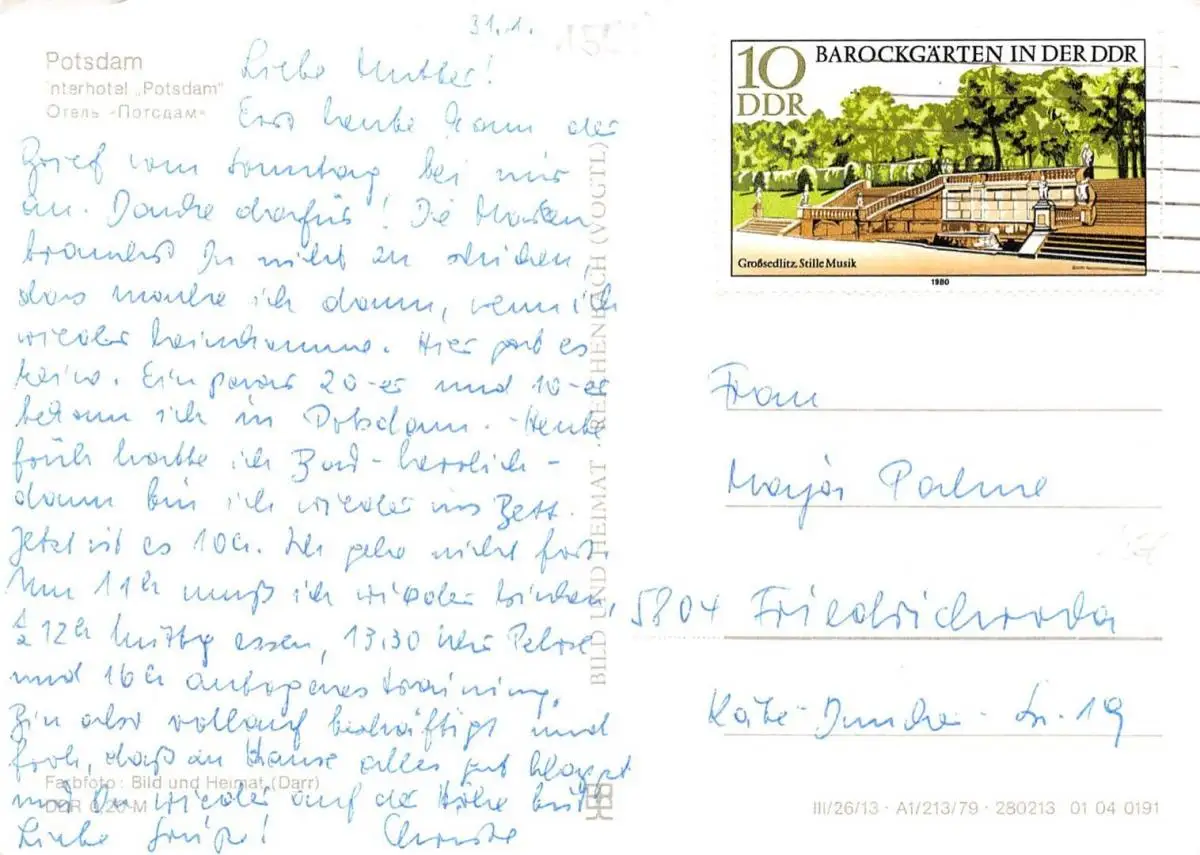 31.1.
Potsdam
Interhotel „Potsdam"
Отель «Потсдам»
Liebe Mutter!
Erst heute kam der
Brief vom Sonntag bei mir
an. Danke dafür! Die Marken
brauchst Du nicht zu schicken,
das mache ich dann, wenn ich
wieder heimkomme. Hier gab es
keine. Ein paar 20-er und 10-er
bekam ich in Potsdam. - Heute
früh hatte ich Bad - herrlich -
dann bin ich wieder ins Bett.
Jetzt ist es 10h. Ich gehe nicht fort.
Um 11h muß ich wieder
12h Mittag essen, 13.30
und 16h autogenes Training.
Bin also vollauf beschäftigt und
froh, daß zu Hause alles gut klappt
und Du wieder auf der Höhe bist.
Liebe Grüße! Christe
Farbfoto: Bild und Heimat (Darr)
DDR 0,20 M
BILD UND HEIMAT · REICHENBACH (VOGTL)
10
DDR
BAROCKGÄRTEN IN DER DDR
Großsedlitz, Stille Musik
1980
Frau
Palme
5804 Friedrichroda
Käte-Duncker-Str. 19
III/26/13 · A1/213/79 · 280213 01 04 0191